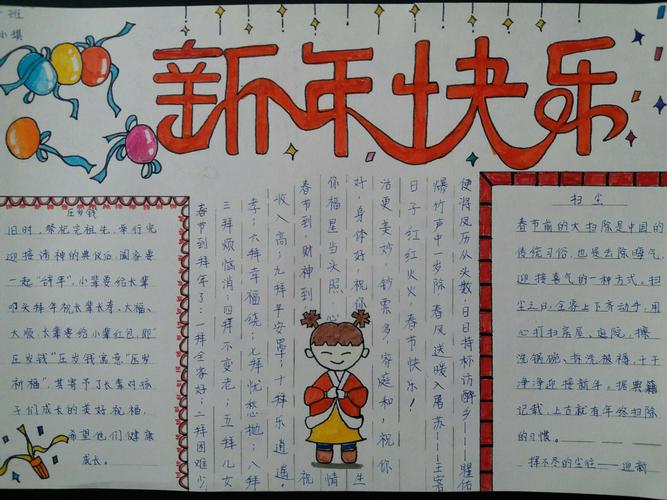 班
小琪
新年快乐
压岁钱
旧时，祭祀完祖先，举行完
迎接诸神的典仪后，阖家要
一起“饼年”，小辈要给长辈
叩头拜年祝长辈长寿、大福、
大顺，长辈要给小辈红包，即“
压岁钱”压岁钱寓意“压岁
祈福”，其寄予了长辈对孩
子们成长的美好祝福，
希望他们健康
成长。
便将凤历从头数 日日持杯访醉乡——瞿佑
爆竹声中一岁除 春风送暖入屠苏——王安
日子红红火火，春节快乐！
活更美妙，钞票多，家庭和，祝你
好，身体好，祝你生
你福星当头照，心情
春节到，财神到，祝
收入高；九拜平安罩；十拜乐逍遥。
孝；六拜幸福绕；七拜忧愁抛；八拜
三拜烦恼消；四拜不变老；五拜儿女
春节到拜年了：一拜全家好；二拜困难少，
扫尘
春节前的大扫除是中国的
传统习俗，也是去除晦气，
迎接喜气的一种方式。扫
尘之日，全家上下齐动手，用
心打扫房屋、庭院，擦
洗锅碗、拆洗被褥，干干
净净迎接新年。据典籍
记载，上古就有年终扫除
的习惯。
挥不尽的尘往——迎新